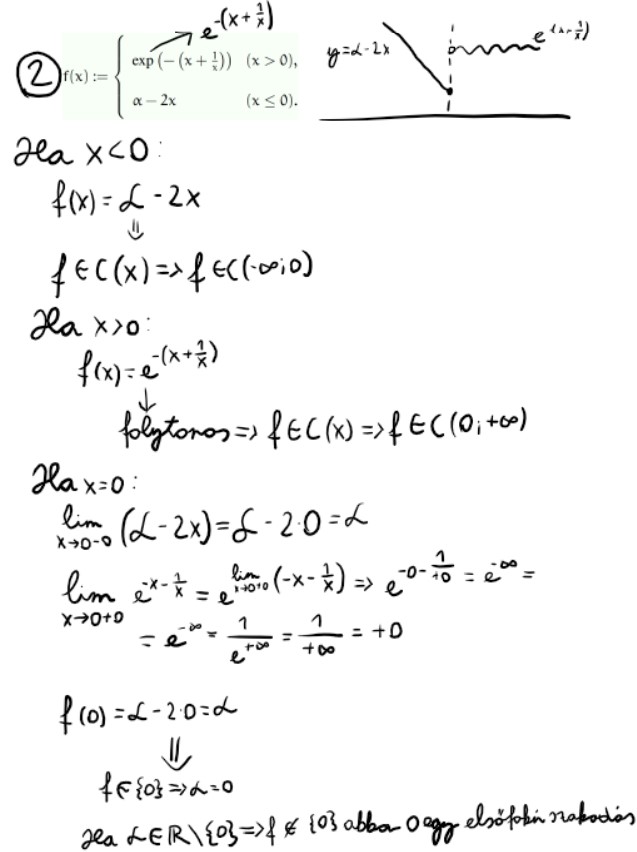 e^{-(x+\frac{1}{x})}
② f(x) := { exp(−(x + \frac{1}{x})) (x > 0),
α − 2x (x ≤ 0).
y=α-2x
Ha x<0:
f(x)=α-2x
⇓
f∈C(x)=>f∈C(-∞;0)
Ha x>0:
f(x)=e^{-(x+\frac{1}{x})}
↓
folytonos=>f∈C(x)=>f∈C(0;+∞)
Ha x=0:
\lim_{x→0-0}(α-2x)=α-2·0=α
\lim_{x→0+0} e^{-x-\frac{1}{x}} = e^{\lim_{x→0+0}(-x-\frac{1}{x})} => e^{-0-\frac{1}{+0}} = e^{-∞} =
= e^{-∞} = \frac{1}{e^{+∞}} = \frac{1}{+∞} = +0
f(0)=α-2·0=α
⇓
f∈{0}=>α=0
Ha α∈R\{0}=>f∉{0} abban 0 egy elsőfokú szakadás